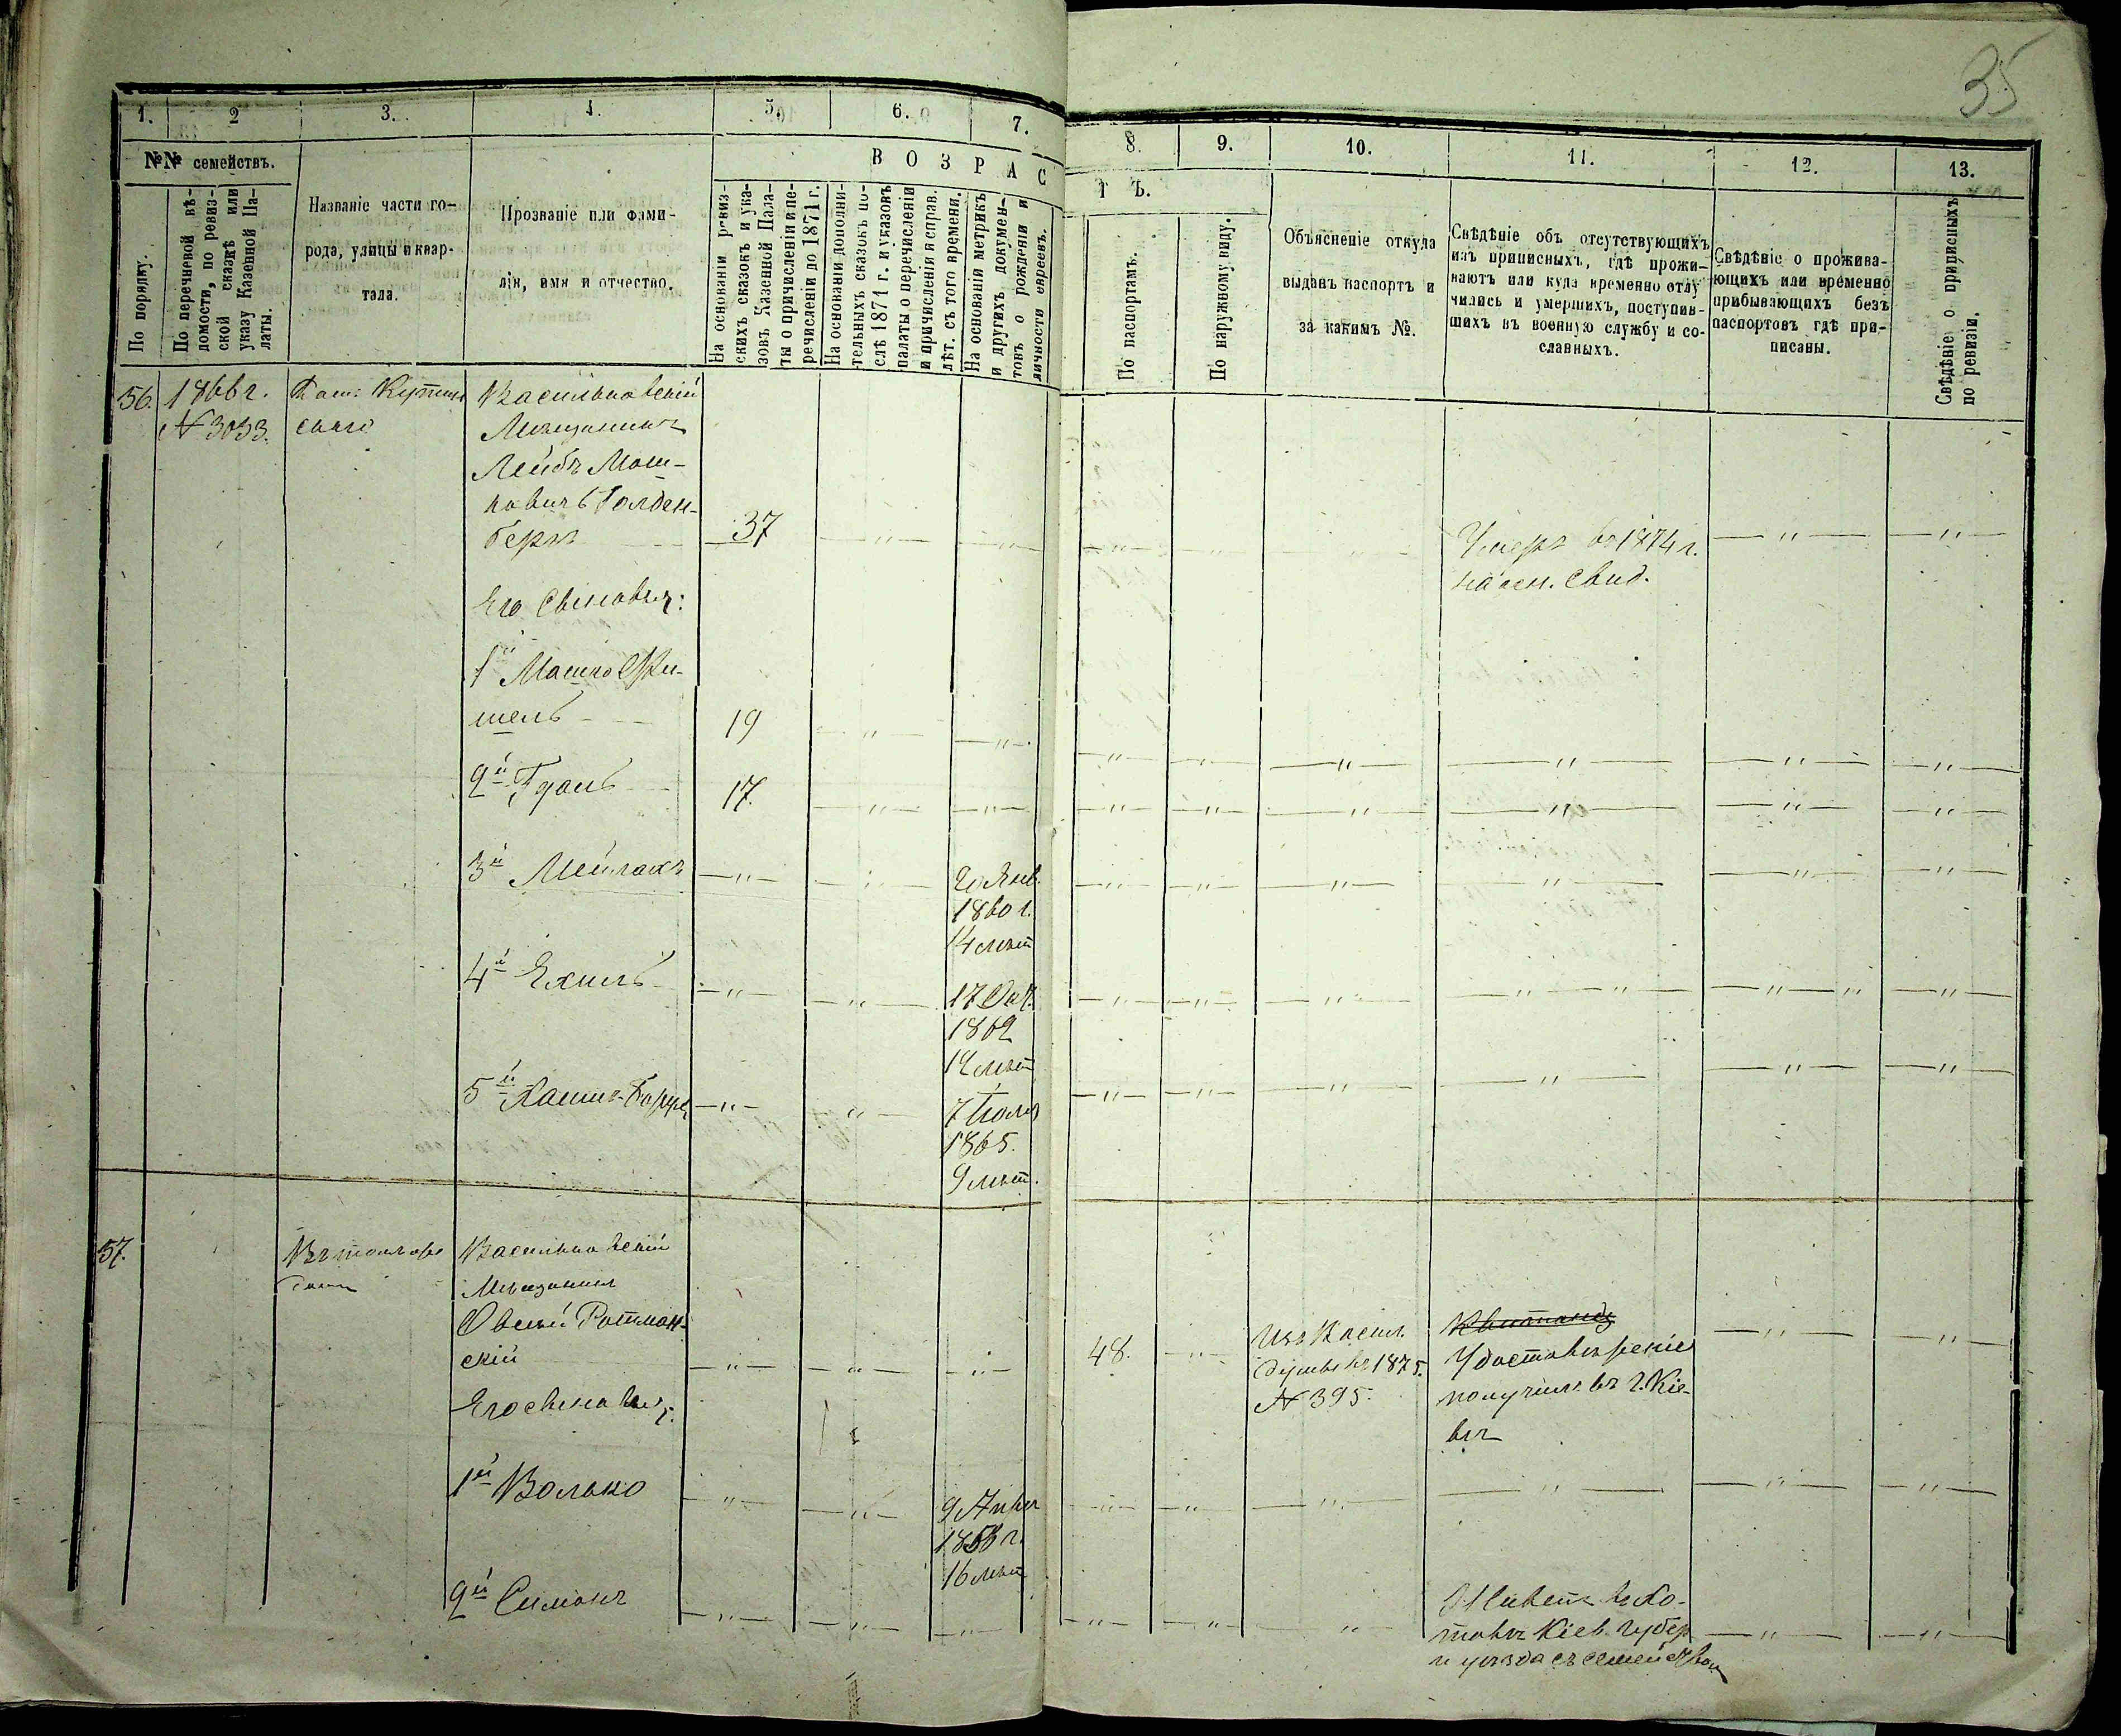 35
1. 2 3. 4. 5. 6. 7. 8. 9. 10. 11. 12. 13.
№№ семействъ.
По порядку.
По перечневой вѣ-
домости, по ревиз-
ской сказкѣ или
указу Казенной Па-
латы.
Названіе части го-
рода, улицы и квар-
тала.
Прозваніе или фами-
лія, имя и отчество.
ВОЗРАСТЪ.
На основаніи ревиз-
скихъ сказокъ и ука-
зовъ Казенной Пала-
ты о причисленіи и пе-
речисленіи до 1871 г.
На основаніи дополни-
тельныхъ сказокъ по-
слѣ 1871 г. и указовъ
палаты о перечисленіи
и причисленіи и справ.
лѣт. съ того времени.
На основаніи метрикъ
и другихъ докумен-
товъ о рожденіи и
личности евреевъ.
По паспортамъ.
По наружному виду.
Объясненіе откуда
выданъ паспортъ и
за какимъ №.
Свѣдѣніе объ отсутствующихъ
изъ приписныхъ, гдѣ прожи-
ваютъ или куда временно отлу
чились и умершихъ, поступив-
шихъ въ военную службу и со-
сланныхъ.
Свѣдѣніе о прожива-
ющихъ или временно
прибывающихъ безъ
паспортовъ гдѣ при-
писаны.
Свѣдѣніе о приписныхъ
по ревизіи.
56. 1866 г.
№ 3033.
Васильковскій
Мѣщанинъ
Лейбъ Мош-
ковичъ Голден-
бергъ 37
Умеръ въ 1874 г.
свид.
Его Сыновья:
1й Мошко
19
2й 17.
3й Мейлахъ 20 Янв.
1860 г.
14 лѣт
4й Ехиль 17 Окт.
1862
12 лѣт
5й 7 Іюля
1865.
9 лѣт.
57.
Васильковскій
Мѣщанинъ
Овсей Ротман-
скій
48.
Изъ Васил.
Думы въ 1875.
№ 395.
Удостовѣреніе
получилъ въ г. Кіе-
вѣ
Его сыновья:
1й Волько 9 Апрѣл
1858 г.
16 лѣт
2й Симонъ
Живетъ въ Хо-
товѣ Кіев. губер
и уѣзда съ семействомъ